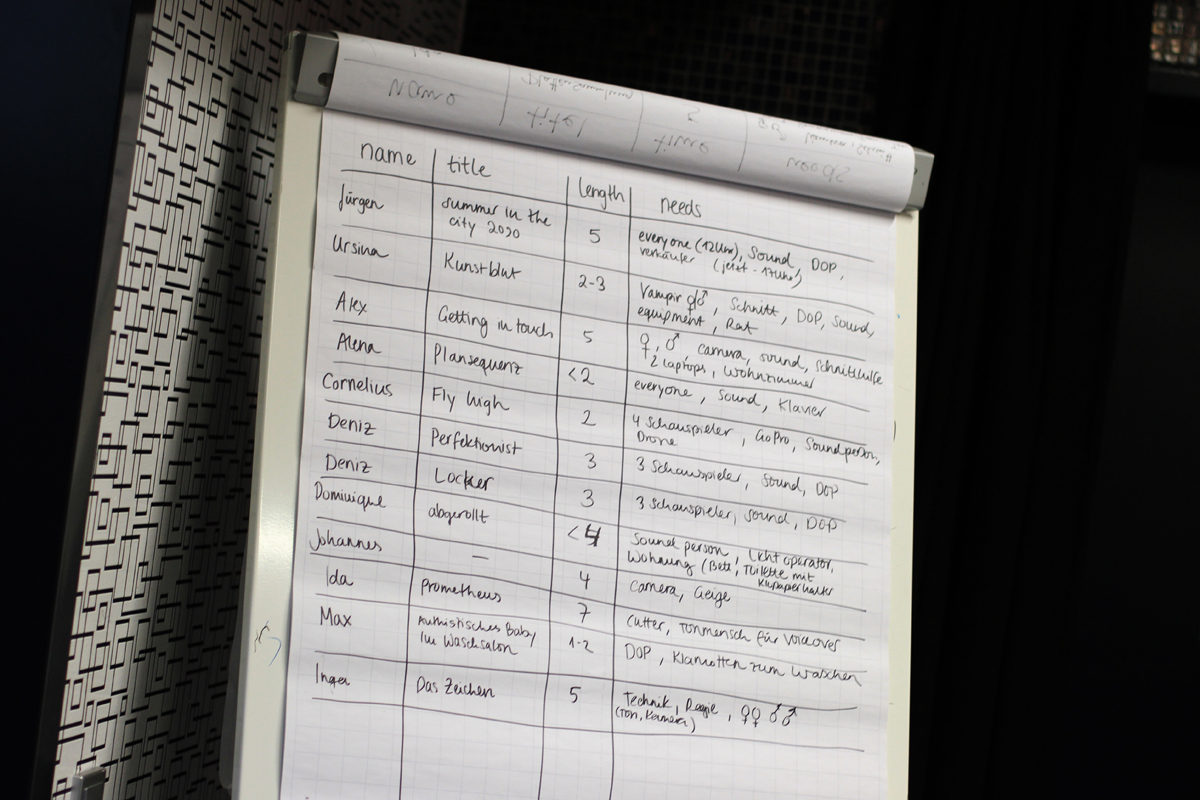 name title length needs
Jürgen summer in the city 2030 5 everyone (12Uhr), Sound DOP,
verkäufer (jetzt - 17Uhr)
Ursina Kunstblut 2-3 Vampir ♀/♂, Schnitt, DOP, Sound,
equipment, Rat
Alex Getting in touch 5 ♀, ♂, camera, sound, Schnitthilfe
2 laptops, Wohnzimmer
Alena Plansequenz <2 everyone, Sound, Klavier
Cornelius Fly high 2 4 Schauspieler, GoPro, Soundperson,
Drone
Deniz Perfektionist 3 3 Schauspieler, Sound, DOP
Deniz Locker 3 3 Schauspieler, Sound, DOP
Dominique abgerollt <4 Sound person, Licht operator,
Wohnung (Bett, Toilette mit
Klopapierhalter
Johannes — 4 camera, Geige
Ida Prometheus 7 Cutter, Tonmensch für Voiceover
Max Authistisches Baby
Im Waschsalon 1-2 DOP, Klamotten zum Waschen
Inga Das Zeichen 5 Technik, Regie, ♀♀ ♂♂
(Ton, Kamera)